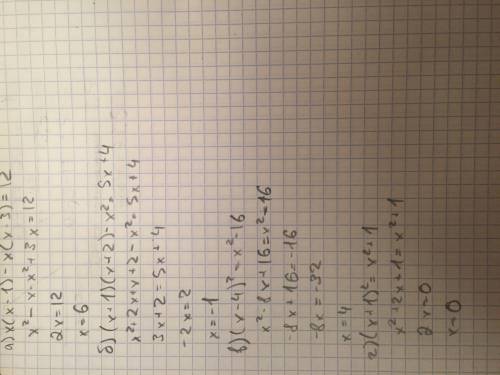 а) x(x-1)-x(x-3)=12
x²-x-x²+3x=12
2x=12
x=6
б) (x+1)(x+2)-x²=5x+4
x²+2x+x+2-x²=5x+4
3x+2=5x+4
-2x=2
x=-1
в) (x-4)²=x²-16
x²-8x+16=x²-16
-8x+16=-16
-8x=-32
x=4
г) (x+1)²=x²+1
x²+2x+1=x²+1
2x=0
x=0